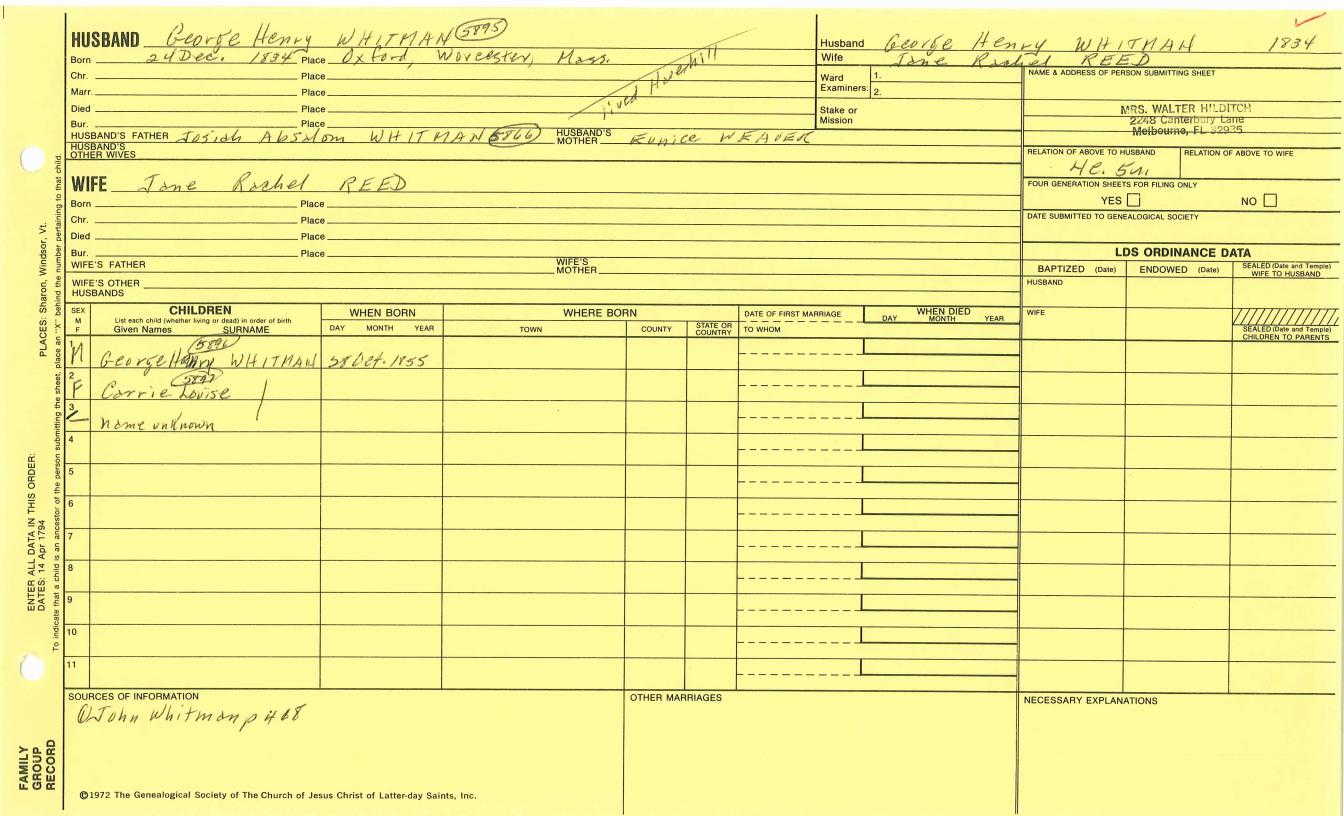 HUSBAND George Henry WHITMAN 5895
Born 24 Dec. 1834 Place Oxford, Worcester, Mass.
Chr. Place
Marr. Place
Died Place
Bur. Place
lived Haverhill
HUSBAND'S FATHER Josiah Absalom WHITMAN 5866 HUSBAND'S MOTHER Eunice WEAVER
HUSBAND'S OTHER WIVES
WIFE Jane Rachel REED
Born Place
Chr. Place
Died Place
Bur. Place
WIFE'S FATHER WIFE'S MOTHER
WIFE'S OTHER HUSBANDS
Husband George Henry WHITMAN 1834
Wife Jane Rachel REED
Ward Examiners: 1.
2.
Stake or Mission
NAME & ADDRESS OF PERSON SUBMITTING SHEET
MRS. WALTER HILDITCH
2248 Canterbury Lane
Melbourne, FL 32935
RELATION OF ABOVE TO HUSBAND RELATION OF ABOVE TO WIFE
FOUR GENERATION SHEETS FOR FILING ONLY
YES NO
DATE SUBMITTED TO GENEALOGICAL SOCIETY
LDS ORDINANCE DATA
BAPTIZED (Date) ENDOWED (Date) SEALED (Date and Temple) WIFE TO HUSBAND
HUSBAND
WIFE
SEALED (Date and Temple) CHILDREN TO PARENTS
SEX M F
CHILDREN
List each child (whether living or dead) in order of birth
Given Names SURNAME
WHEN BORN
DAY MONTH YEAR
WHERE BORN
TOWN COUNTY STATE OR COUNTRY
DATE OF FIRST MARRIAGE
TO WHOM
WHEN DIED
DAY MONTH YEAR
M George Henry WHITMAN 28 Oct. 1855
2 F Carrie Louise
3 name unknown
4
5
6
7
8
9
10
11
SOURCES OF INFORMATION
John Whitman p
OTHER MARRIAGES
NECESSARY EXPLANATIONS
©1972 The Genealogical Society of The Church of Jesus Christ of Latter-day Saints, Inc.
FAMILY GROUP RECORD
ENTER ALL DATA IN THIS ORDER:
DATES: 14 Apr 1794
PLACES: Sharon, Windsor, Vt.
To indicate that a child is an ancestor of the person submitting the sheet, place an "X" behind the number pertaining to that child.